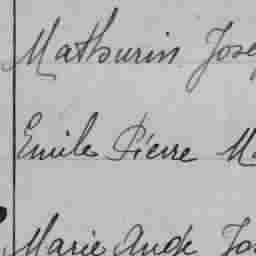 Mathurin Jose
Emile Pierre Ma
Marie Ange Jos